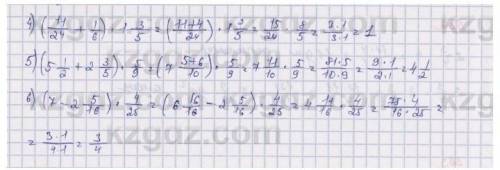 4) (11/24 + 1/6) · 1 3/5 = (11+4/24) · 1 3/5 = 15/24 · 8/5 = 3·1/3·1 = 1
5) (5 1/2 + 2 3/5) · 5/9 = (7 5+6/10) · 5/9 = 7 11/10 · 5/9 = 81·5/10·9 = 9·1/2·1 = 4 1/2
6) (7 - 2 5/16) · 4/25 = (6 16/16 - 2 5/16) · 4/25 = 4 11/16 · 4/25 = 75·4/16·25 =
= 3·1/4·1 = 3/4